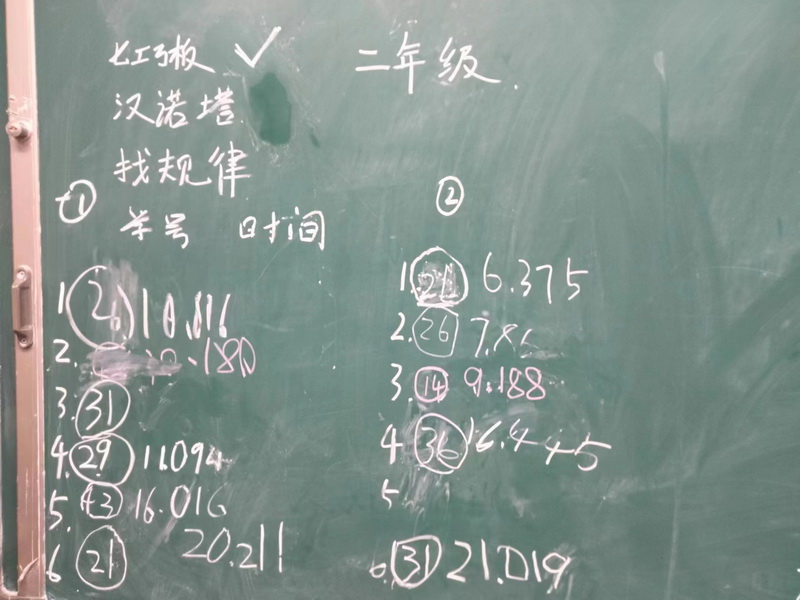 七巧板 ✓
二年级.
汉诺塔
找规律
①
学号 时间
1.
2. .180
3. 31
4. 29 11.094
5. 43 16.016
6 21 20.211
②
1. 21 6.375
2. 26
3. 14 9.188
4 36 16.445
5
6. 31 21.019